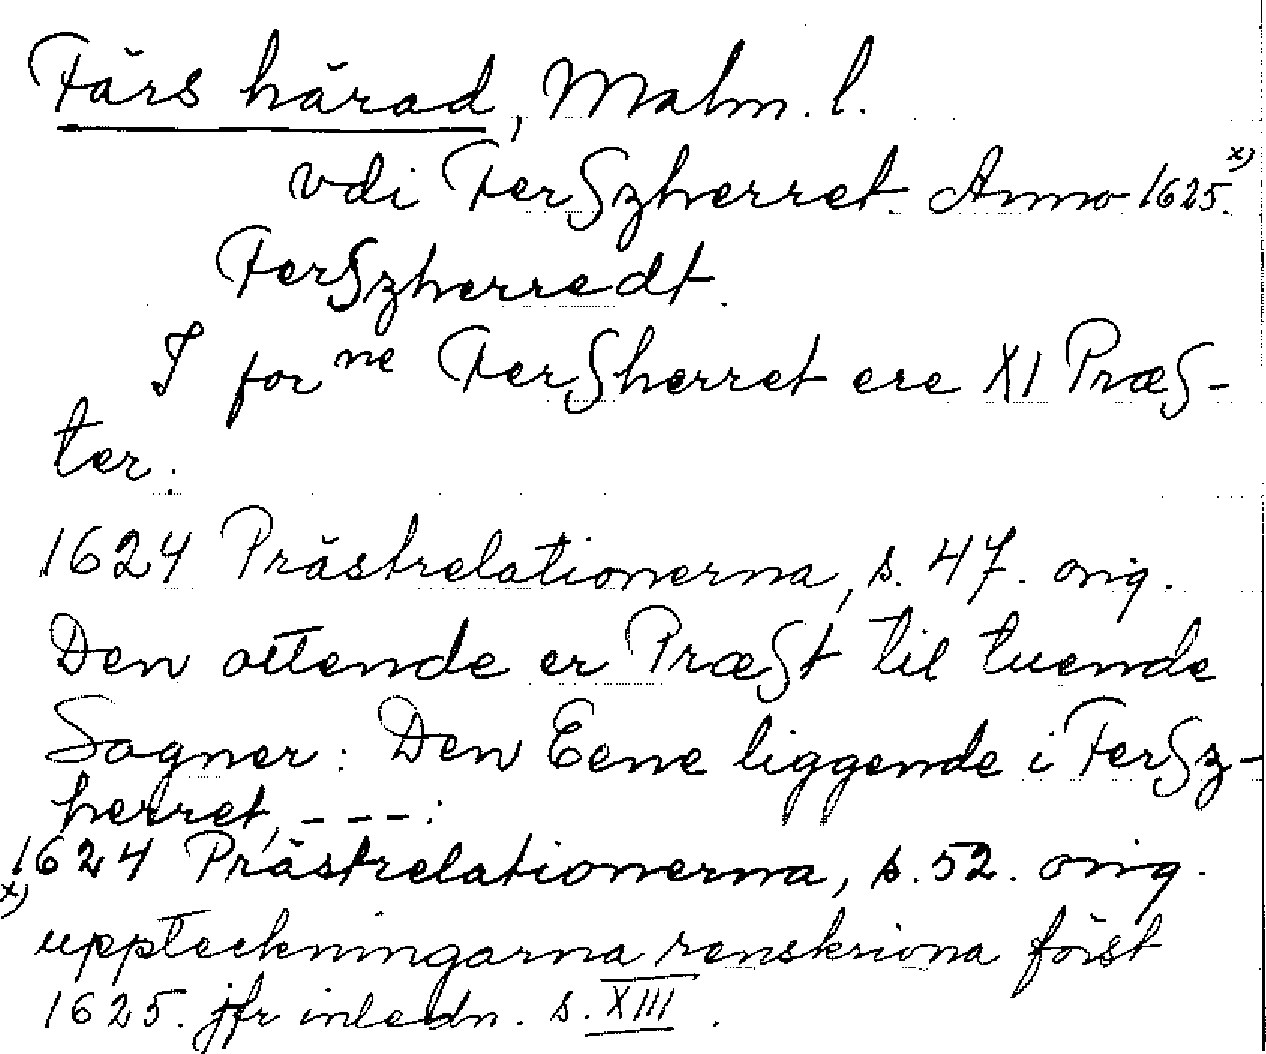 Färs härad, Malm. l.
vdi Ferſzherret Anno 1625.x)
Ferſzherredt.
I forne Ferſherret ere XI Præſ-
ter.
1624 Prästrelationerna, s. 47. orig.
Den ottende er Præſt til tuende
Sogner: Den Eene liggende i Ferſz-
herret, ---.
1624 Prästrelationerna, s. 52. orig.
x)
uppteckningarna renskrivna först
1625. jfr inledn. s. XIII.